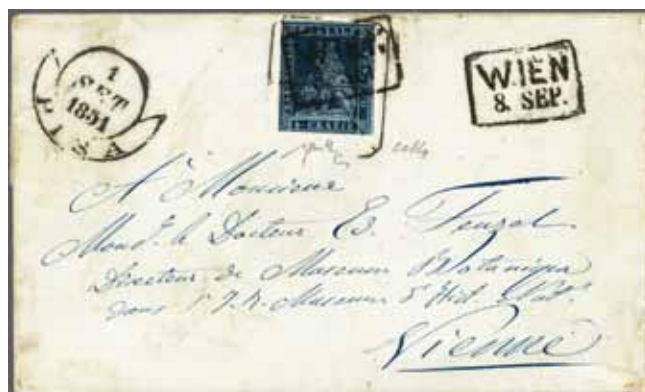 1
SET
1851
PISA
6 CRAZIE
WIEN
8. SEP.
A Monsieur
Mons. le Docteur Ed. Fenzl
Directeur de Museum Botanique
dans l' I. R. Museum d' Hist. Nat.
Vienne